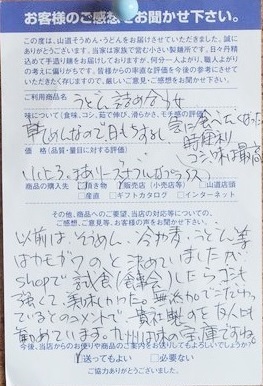 お客様のご感想をお聞かせ下さい。
この度は、山道そうめん・うどんをお届けさせていただきました。誠に
ありがとうございます。当店は家族で営む小さい製麺所です。日々丹精
込めて手造り麺をお届けしておりますが、何分一人よがりり、職人よがり
の考えに偏りがちです。皆様からの率直な評価を今後の参考にさせて
いただきたく存じますので、厳しいご意見をお聞かせ下さい。
ご利用商品名
うどん詰め合せ
味について(食味、コシ、茹で伸び、滑らかさ、モチ感の評価)
乾めんなので日もちするし 急に食べたくなった
時便利
コシ 味は最高
価 格(品質・量目に対する評価)
商品の購入先
頂き物
販売店(小売店等)
山道店頭
産直
ギフトカタログ
インターネット
その他、商品へのご要望、当店の対応等についての、
感想、ご意見等、お客様の声をお聞かせ下さい。
以前は、そうめん、冷麦、うどん等
はカモガワのと決めていましたが
shopで試食(会)しましたらコシも
強くて、美味しかった。無添加でこだわっ
ているとのコメントで 貴社製のを友人にも
勧めています。九州は味の宝庫ですね。
今後、当店からのお便りや商品のご案内をお送りしてもよろしいでしょうか?
送ってもよい
必要ない
ご協力ありがとうございました。